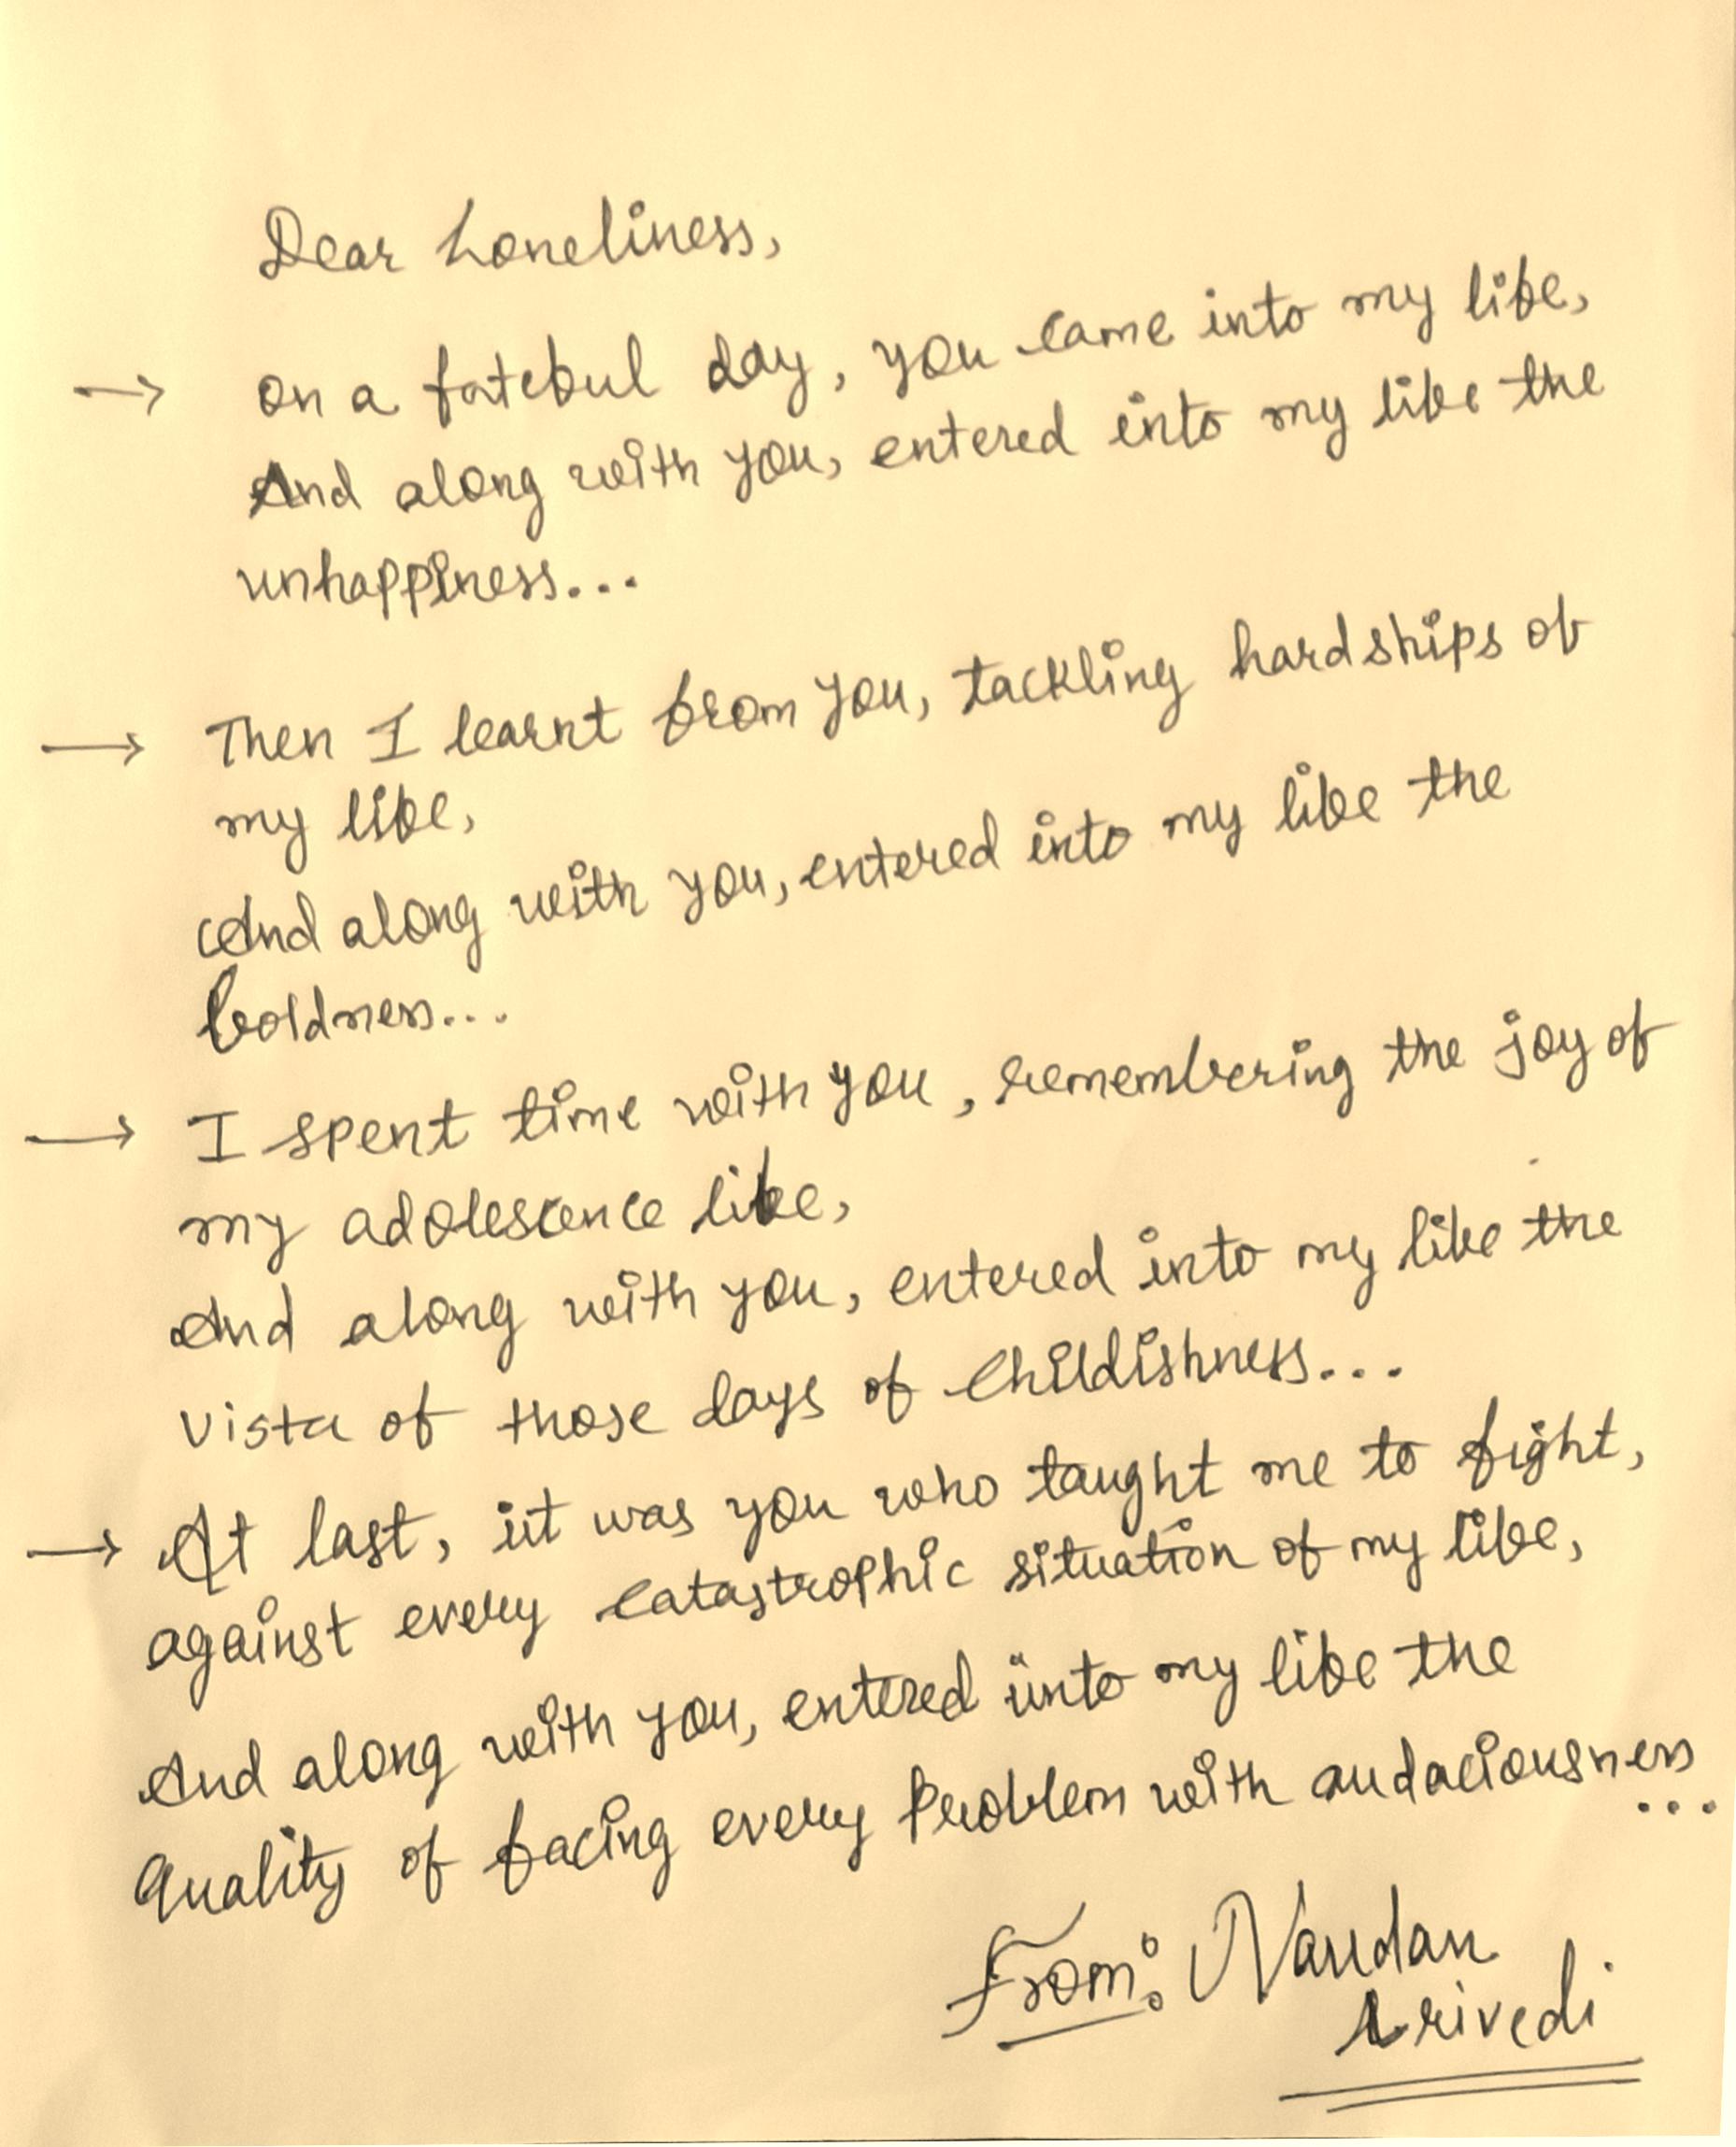 Dear Loneliness,
→ on a fateful day, you came into my life,
And along with you, entered into my life the
unhappiness...
→ Then I learnt from you, tackling hardships of
my life,
And along with you, entered into my life the
boldness...
→ I spent time with you, remembering the joy of
my adolescence life,
And along with you, entered into my life the
vista of those days of childishness...
→ At last, it was you who taught me to fight,
against every catastrophic situation of my life,
And along with you, entered into my life the
Quality of facing every Problem with audaciousness
...
From: Nandan
Trivedi